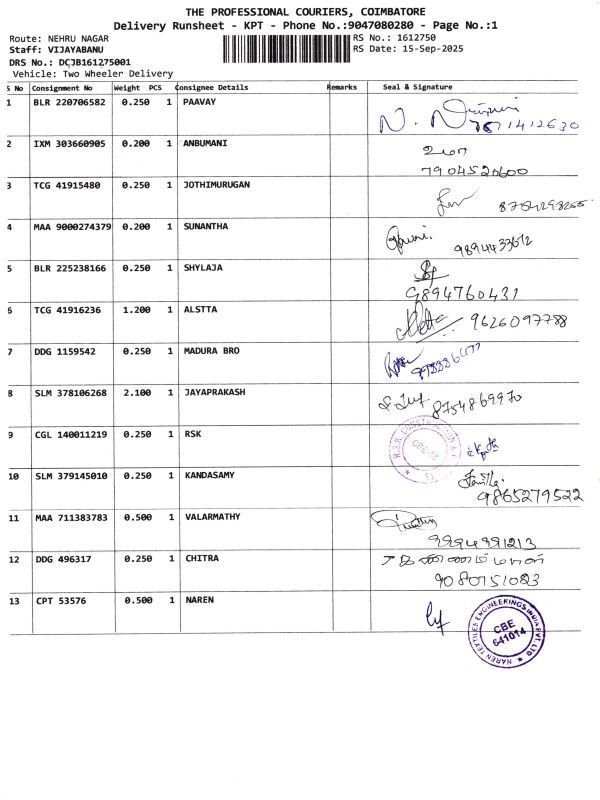 THE PROFESSIONAL COURIERS, COIMBATORE
Delivery Runsheet - KPT - Phone No.:9047080280 - Page No.:1
Route: NEHRU NAGAR RS No.: 1612750
Staff: VIJAYABANU RS Date: 15-Sep-2025
DRS No.: DCJB161275001
Vehicle: Two Wheeler Delivery
S No Consignment No Weight PCS Consignee Details Remarks Seal & Signature
1 BLR 220706582 0.250 1 PAAVAY N.
2 IXM 303660905 0.200 1 ANBUMANI உமா
7904520600
3 TCG 41915480 0.250 1 JOTHIMURUGAN
4 MAA 9000274379 0.200 1 SUNANTHA 9894433672
5 BLR 225238166 0.250 1 SHYLAJA
9894760431
6 TCG 41916236 1.200 1 ALSTTA 9626097788
7 DDG 1159542 0.250 1 MADURA BRO
8 SLM 378106268 2.100 1 JAYAPRAKASH 8754869970
9 CGL 140011219 0.250 1 RSK R.S.K. CONSTRUCTION
10 SLM 379145010 0.250 1 KANDASAMY
9865279522
11 MAA 711383783 0.500 1 VALARMATHY
9994991213
12 DDG 496317 0.250 1 CHITRA
13 CPT 53576 0.500 1 NAREN NAREN TEXTILES ENGINEERINGS INDIA PVT. LTD
CBE
641014